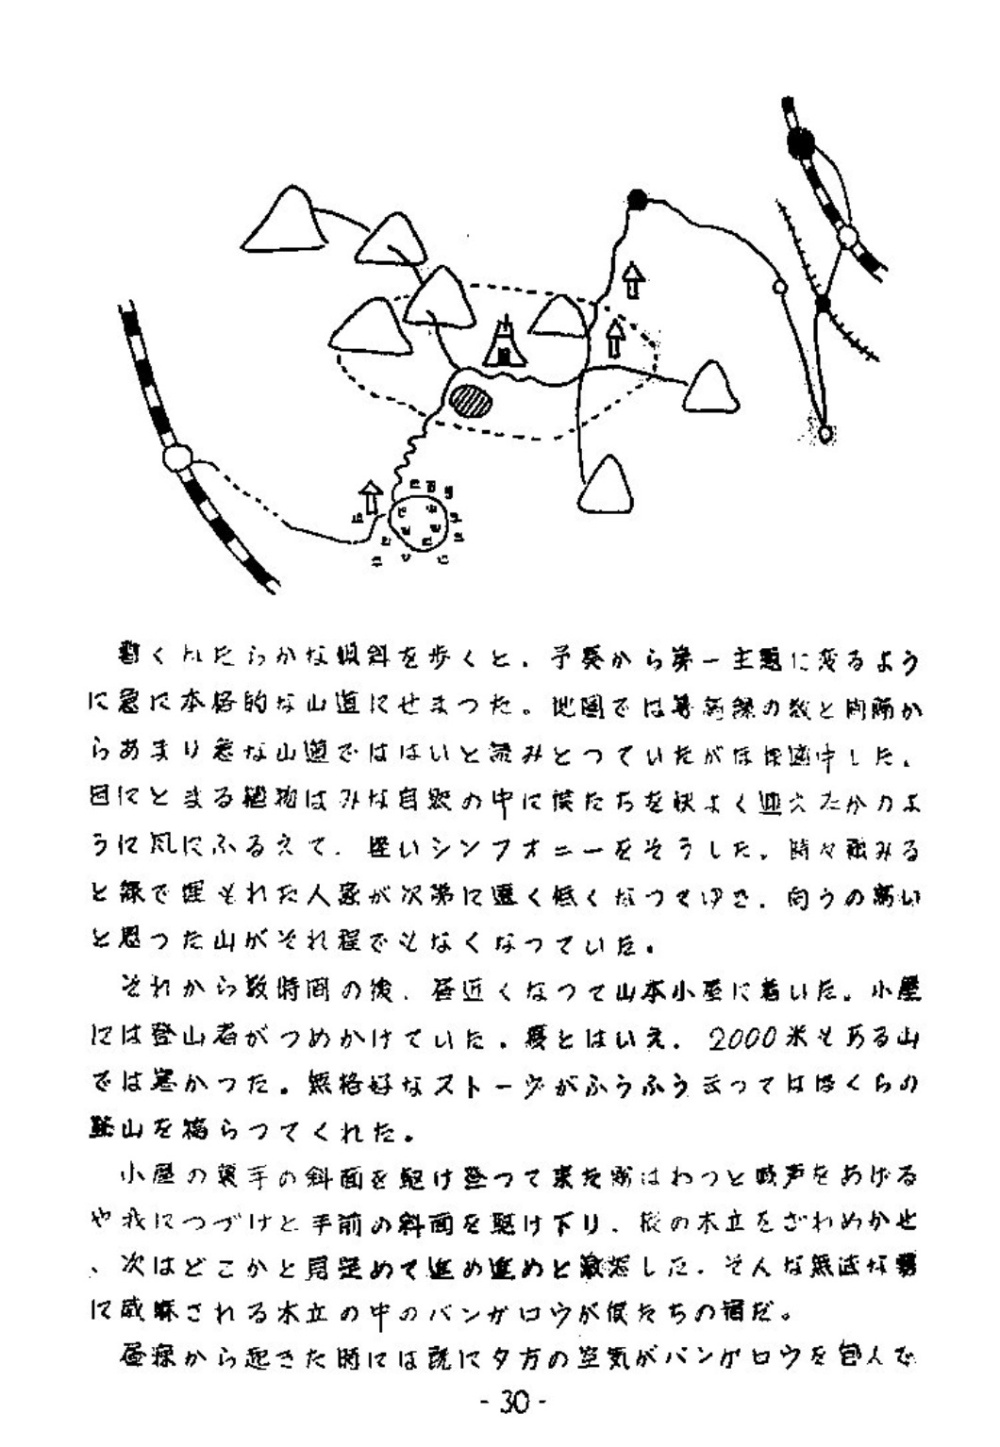 くれたらかな傾斜を歩くと、予奏から第一主題に変るよう
に急に本格的な山道にせまつた。地図では等高線の数と間隔か
らあまり急な山道でははいと読みとつていたがほぼ適中した。
目にとまる植物はみな自然の中に僕たちを快よく迎えたかのよ
うに風にふるえて、軽いシンフオニーをそうした。時々顧みる
と緑で埋もれた人家が次第に遠く低くなつてゆき、向うの高い
と思つた山がそれ程でもなくなつていた。
それから数時間の後、昼近くなつて山本小屋に着いた。小屋
には登山者がつめかけていた。夏とはいえ、2000米もある山
では寒かつた。無格好なストーヴがふうふうまってはぼくらの
登山を犒らつてくれた。
小屋の裏手の斜面を駆け登つて来た霧はわつと喊声をあげる
や我につづけと手前の斜面を駆け下り、樅の木立をざわめかせ
、次はどこかと見定めて進め進めと激怒した。そんな無遠な霧
に威嚇される木立の中のバンガロウが僕たちの宿だ。
昼寝から起きた時には既に夕方の空気がバンガロウを包んで
- 30 -